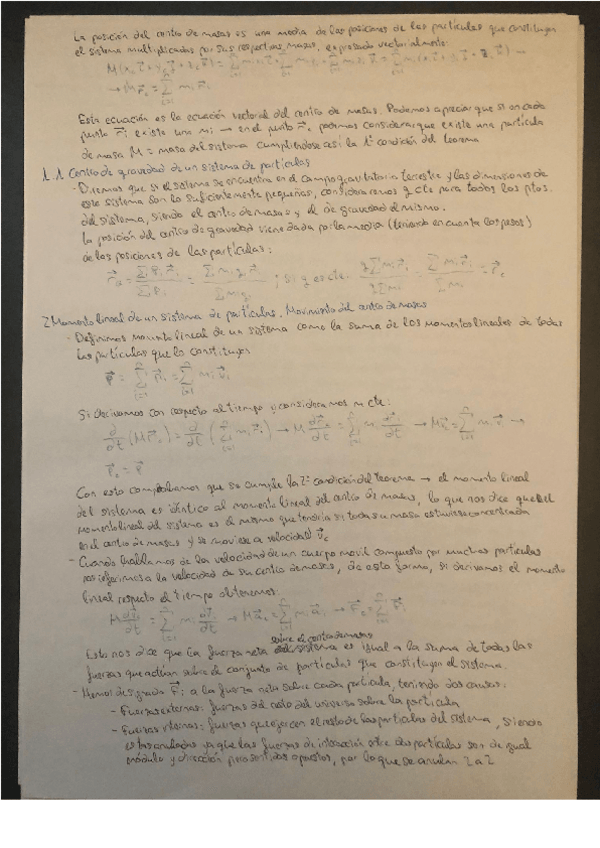 La posición del centro de masas es una media de las posiciones de las partículas que constituyen
el sistema multiplicadas por sus respectivas masas, expresado vectorialmente:
→ M r⃗c = Σ mi r⃗i
Esta ecuación es la ecuación vectorial del centro de masas. Podemos apreciar que si en cada
punto r⃗i existe una mi → en el punto r⃗c podemos considerar que existe una partícula
de masa M = masa del sistema cumpliéndose así la 1ª condición del teorema
1.1 Centro de gravedad de un sistema de partículas
- Diremos que si el sistema se encuentra en el campo gravitatorio terrestre y las dimensiones de
este sistema son lo suficientemente pequeñas, consideramos g cte para todos los ptos.
del sistema, siendo el centro de masas y el de gravedad el mismo.
La posición del centro de gravedad viene dada por la media (teniendo en cuenta los pesos)
de las posiciones de las partículas:
r⃗G = Σ Pi r⃗i / Σ Pi = Σ mi g r⃗i / Σ mi g ; si g es cte. g Σ mi r⃗i / g Σ mi = Σ mi r⃗i / Σ mi = r⃗c
2 Momento lineal de un sistema de partículas. Movimiento del centro de masas
- Definimos momento lineal de un sistema como la suma de los momentos lineales de todas
las partículas que lo constituyen
P⃗ = Σ p⃗i = Σ mi v⃗i
Si derivamos con respecto al tiempo y consideramos m cte:
d/dt (M r⃗c) = d/dt (Σ mi r⃗i) → M dr⃗c/dt = Σ mi dr⃗i/dt → M v⃗c = Σ mi v⃗i →
P⃗c = P⃗
Con esto comprobamos que se cumple la 2ª condición del teorema → el momento lineal
del sistema es idéntico al momento lineal del centro de masas, lo que nos dice que el
momento lineal del sistema es el mismo que tendría si toda su masa estuviese concentrada
en el centro de masas y se moviese a velocidad v⃗c
- Cuando hablamos de la velocidad de un cuerpo móvil compuesto por muchas partículas
nos referimos a la velocidad de su centro de masas, de esta forma, si derivamos el momento
lineal respecto el tiempo obtenemos:
M dv⃗c/dt = Σ mi dv⃗i/dt → M a⃗c = Σ mi a⃗i → F⃗c = Σ F⃗i
sobre el centro de masas
Esto nos dice que la fuerza neta del sistema es igual a la suma de todas las
fuerzas que actúan sobre el conjunto de partículas que constituyen el sistema.
- Hemos designado F⃗i a la fuerza neta sobre cada partícula, teniendo dos causas:
- Fuerzas externas: fuerzas del resto del universo sobre la partícula
- Fuerzas internas: fuerzas que ejercen el resto de las partículas del sistema, siendo
estas anuladas ya que las fuerzas de interacción entre dos partículas son de igual
módulo y dirección pero sentidos opuestos, por lo que se anulan 2 a 2